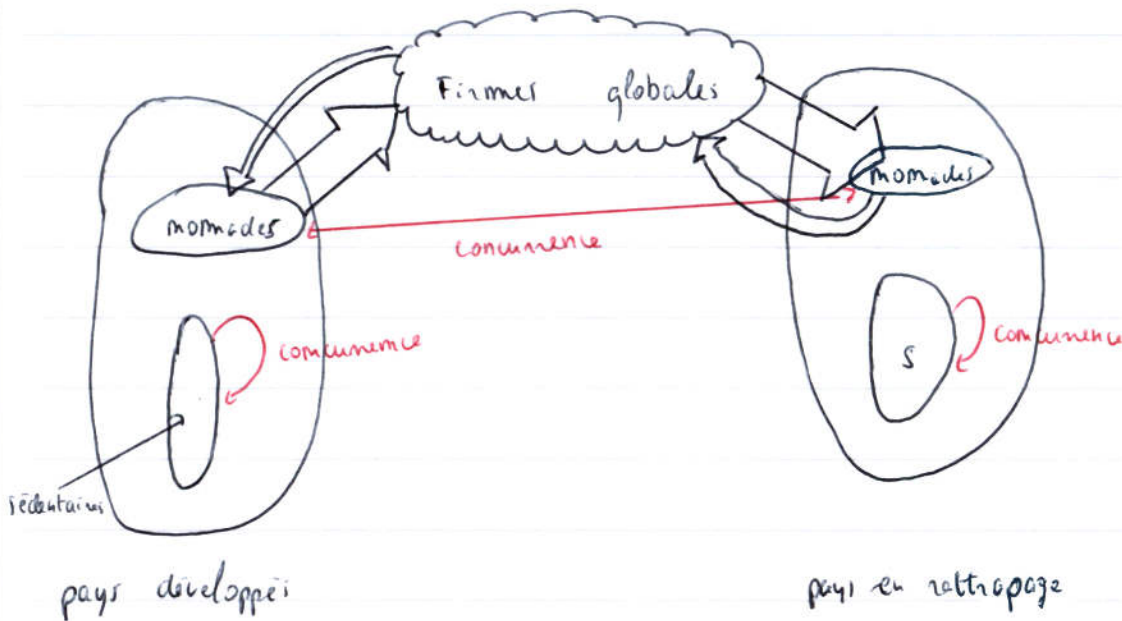 Firmes globales
nomades
nomades
concurrence
concurrence
concurrence
S
sédentaires
pays développés
pays en rattrapage